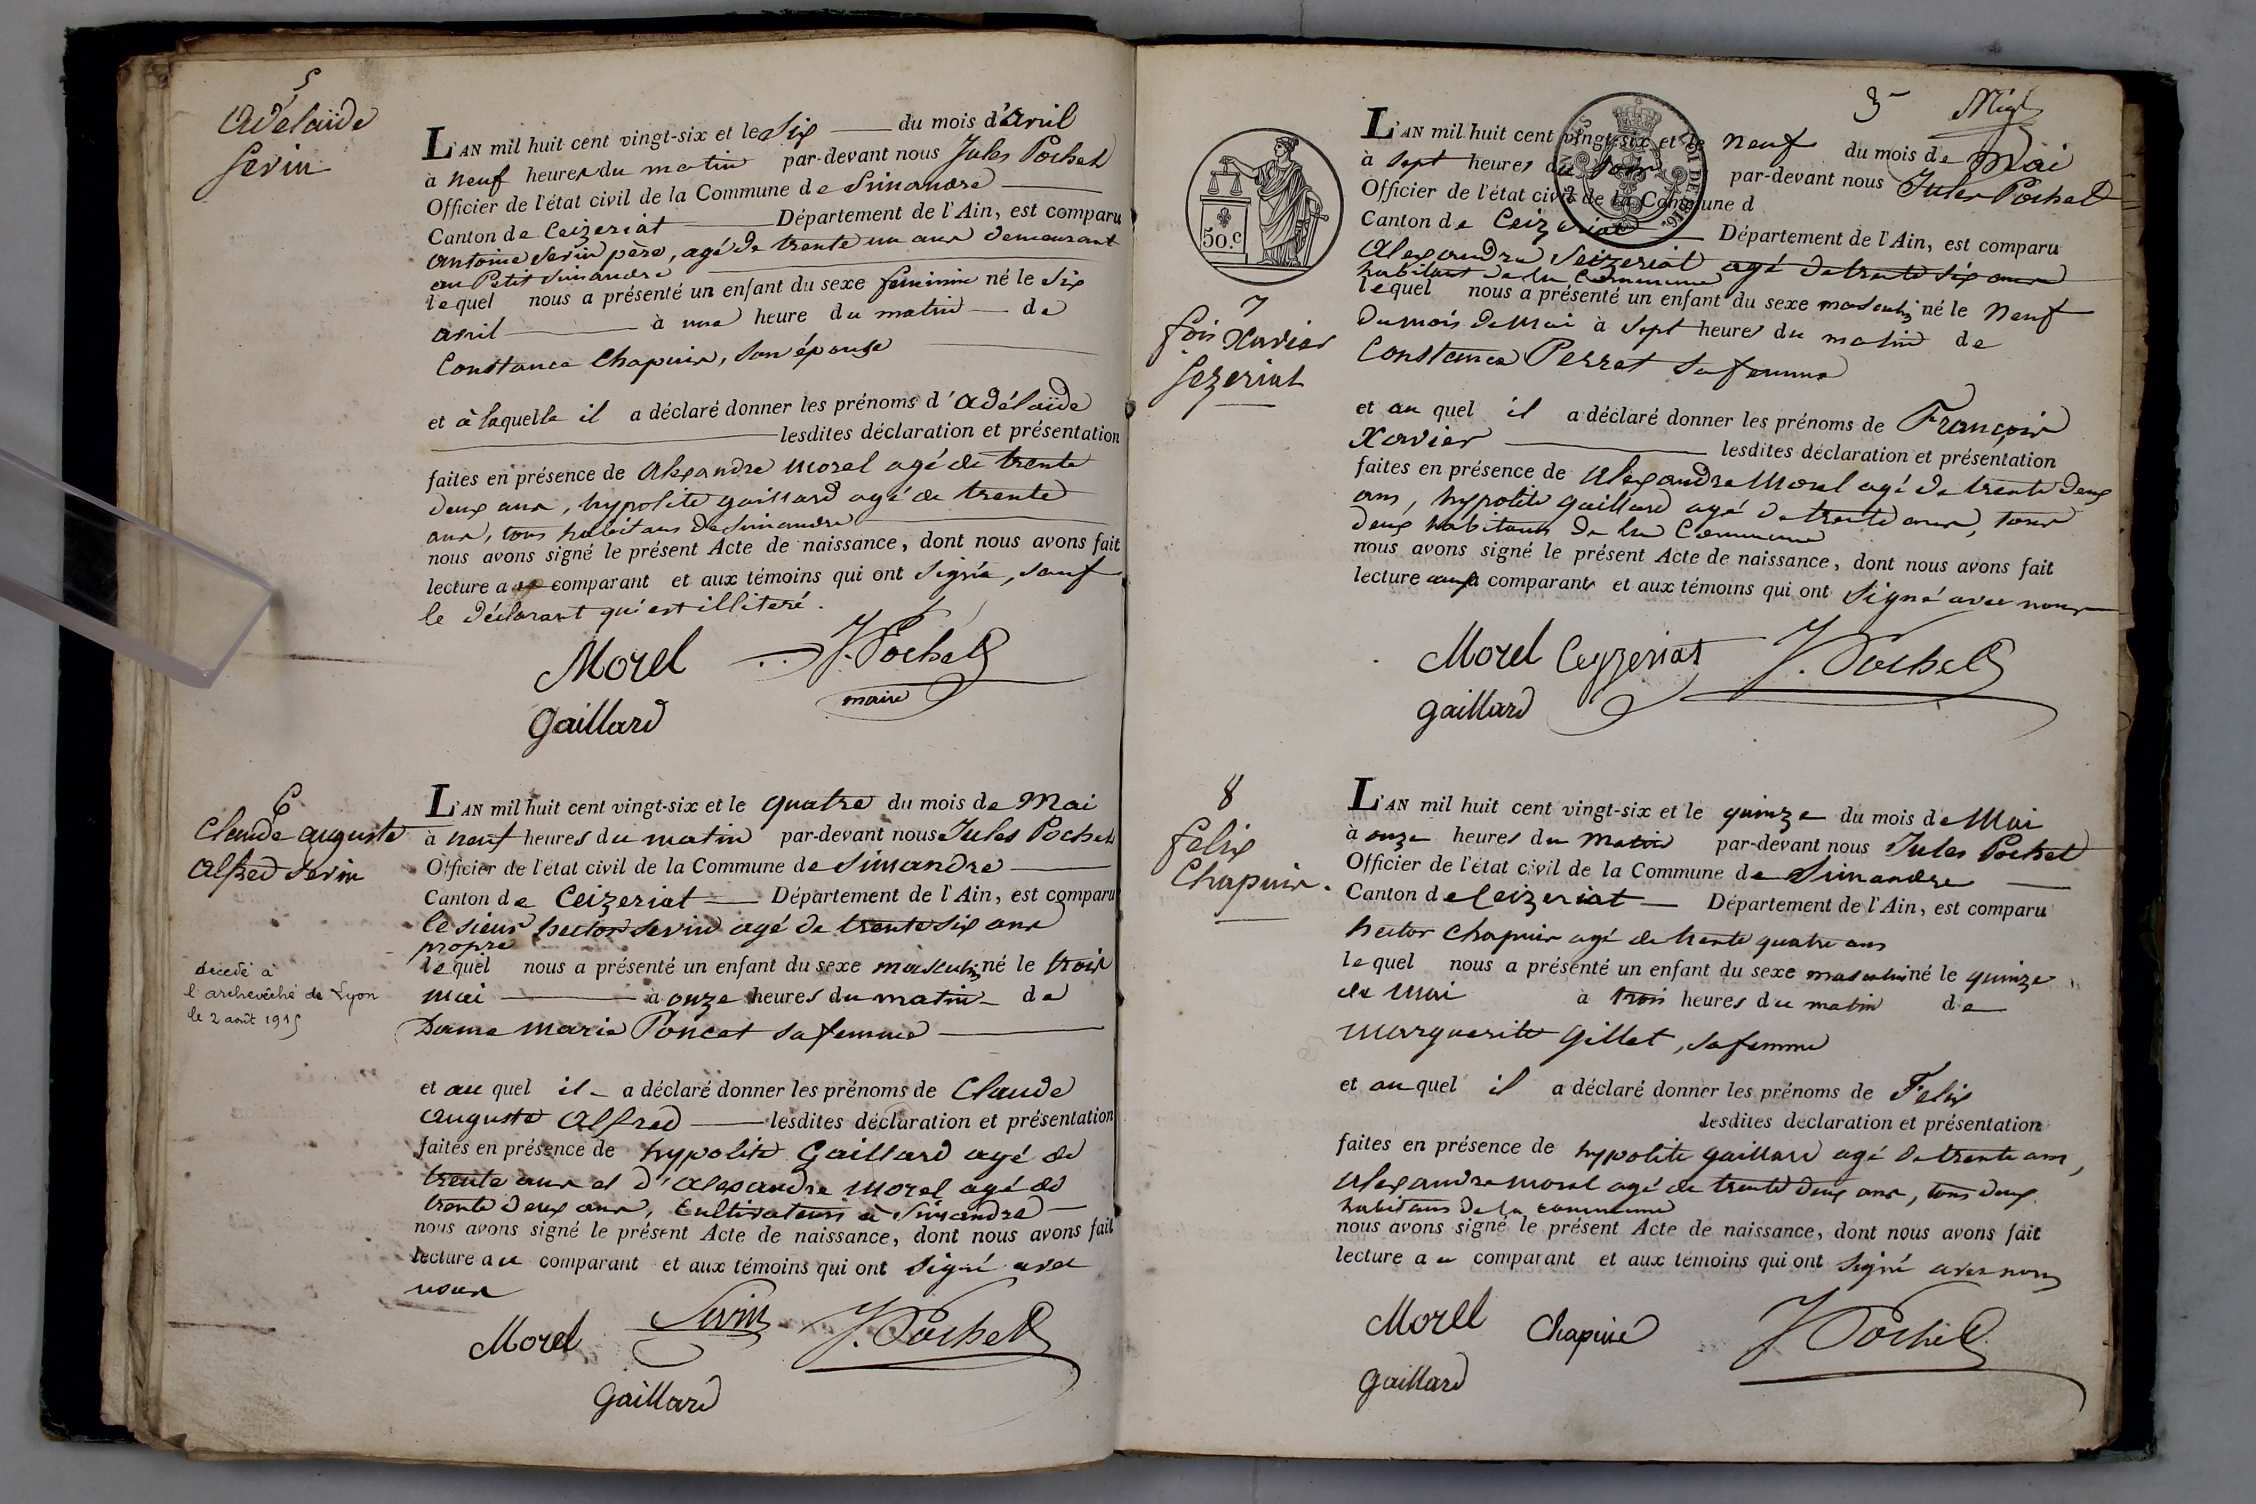 5
Adélaïde
Sevin
L'AN mil huit cent vingt-six et le Six du mois d'avril
à neuf heures du matin par-devant nous Jules Pochet
Officier de l'état civil de la Commune de Simandre
Canton de Ceizeriat Département de l'Ain, est comparu
antoine Sevin père, agé de trente un ans demeurant
au Petit Simandre
lequel nous a présenté un enfant du sexe feminin né le Six
avril à une heure du matin de
Constance Chapuis, son épouse
et à laquelle il a déclaré donner les prénoms d'adélaïde
lesdites déclaration et présentation
faites en présence de alexandre Morel agé de trente
deux ans, hypolite gaillard agé de trente
ans, tous habitans de Simandre
nous avons signé le présent Acte de naissance, dont nous avons fait
lecture au comparant et aux témoins qui ont signé, sauf
le déclarant qui est illiteré.
Morel J. Pochet
maire
Gaillard
6
Claude auguste
alfred Sevin
décédé à
l'archevêché de Lyon
le 2 août 1915
L'AN mil huit cent vingt-six et le quatre du mois de Mai
à neuf heures du matin par-devant nous Jules Pochet
Officier de l'état civil de la Commune de Simandre
Canton de Ceizeriat Département de l'Ain, est comparu
le sieur hector Sevin agé de trente six ans
propre
lequel nous a présenté un enfant du sexe masculin né le trois
mai à onze heures du matin de
Dame marie Poncet sa femme
et au quel il a déclaré donner les prénoms de Claude
auguste alfred lesdites déclaration et présentation
faites en présence de hypolite Gaillard agé de
trente ans et d'alexandre Morel agé de
trente deux ans, Cultivateurs à Simandre
nous avons signé le présent Acte de naissance, dont nous avons fait
lecture au comparant et aux témoins qui ont signé avec
nous
Morel Sevin J. Pochet
Gaillard
3
50.c
7
fois Xavier
Sezeriat
L'AN mil huit cent vingt-six et le neuf du mois de Mai
à Sept heures du soir par-devant nous Jules Pochet
Officier de l'état civil de la Commune d
Canton de Ceizeriat Département de l'Ain, est comparu
alexandre Seizeriat agé de trente six ans
habitant de la Commune
lequel nous a présenté un enfant du sexe masculin né le neuf
du mois de Mai à Sept heures du matin de
Constance Perret sa femme
et au quel il a déclaré donner les prénoms de François
Xavier lesdites déclaration et présentation
faites en présence de alexandre Morel agé de trente deux
ans, hypolite gaillard agé de trente ans, tous
deux habitans de la Commune
nous avons signé le présent Acte de naissance, dont nous avons fait
lecture aux comparants et aux témoins qui ont signé avec nous
Morel Ceyzeriat J. Pochet
gaillard
8
felix
Chapuis.
L'AN mil huit cent vingt-six et le quinze du mois de Mai
à onze heures du matin par-devant nous Jules Pochet
Officier de l'état civil de la Commune de Simandre
Canton de Ceizeriat Département de l'Ain, est comparu
hector Chapuis agé de trente quatre ans
lequel nous a présenté un enfant du sexe masculin né le quinze
de Mai à trois heures du matin de
Marguerite Gillet, sa femme
et au quel il a déclaré donner les prénoms de Felix
lesdites declaration et présentation
faites en présence de hypolite gaillard agé de trente ans,
alexandre morel agé de trente deux ans, tous deux
habitans de la commune
nous avons signé le présent Acte de naissance, dont nous avons fait
lecture au comparant et aux témoins qui ont signé avec nous
Morel Chapuis J Pochet
gaillard